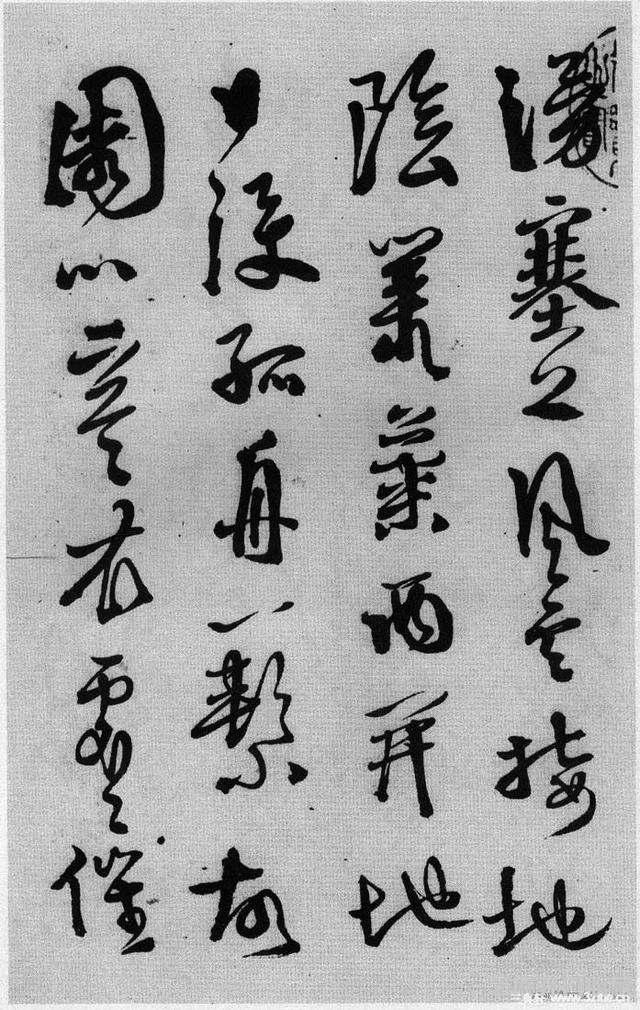 湧塞上風雲接地
陰叢菊兩開他
日淚孤舟一繫故
園心寒衣處處催